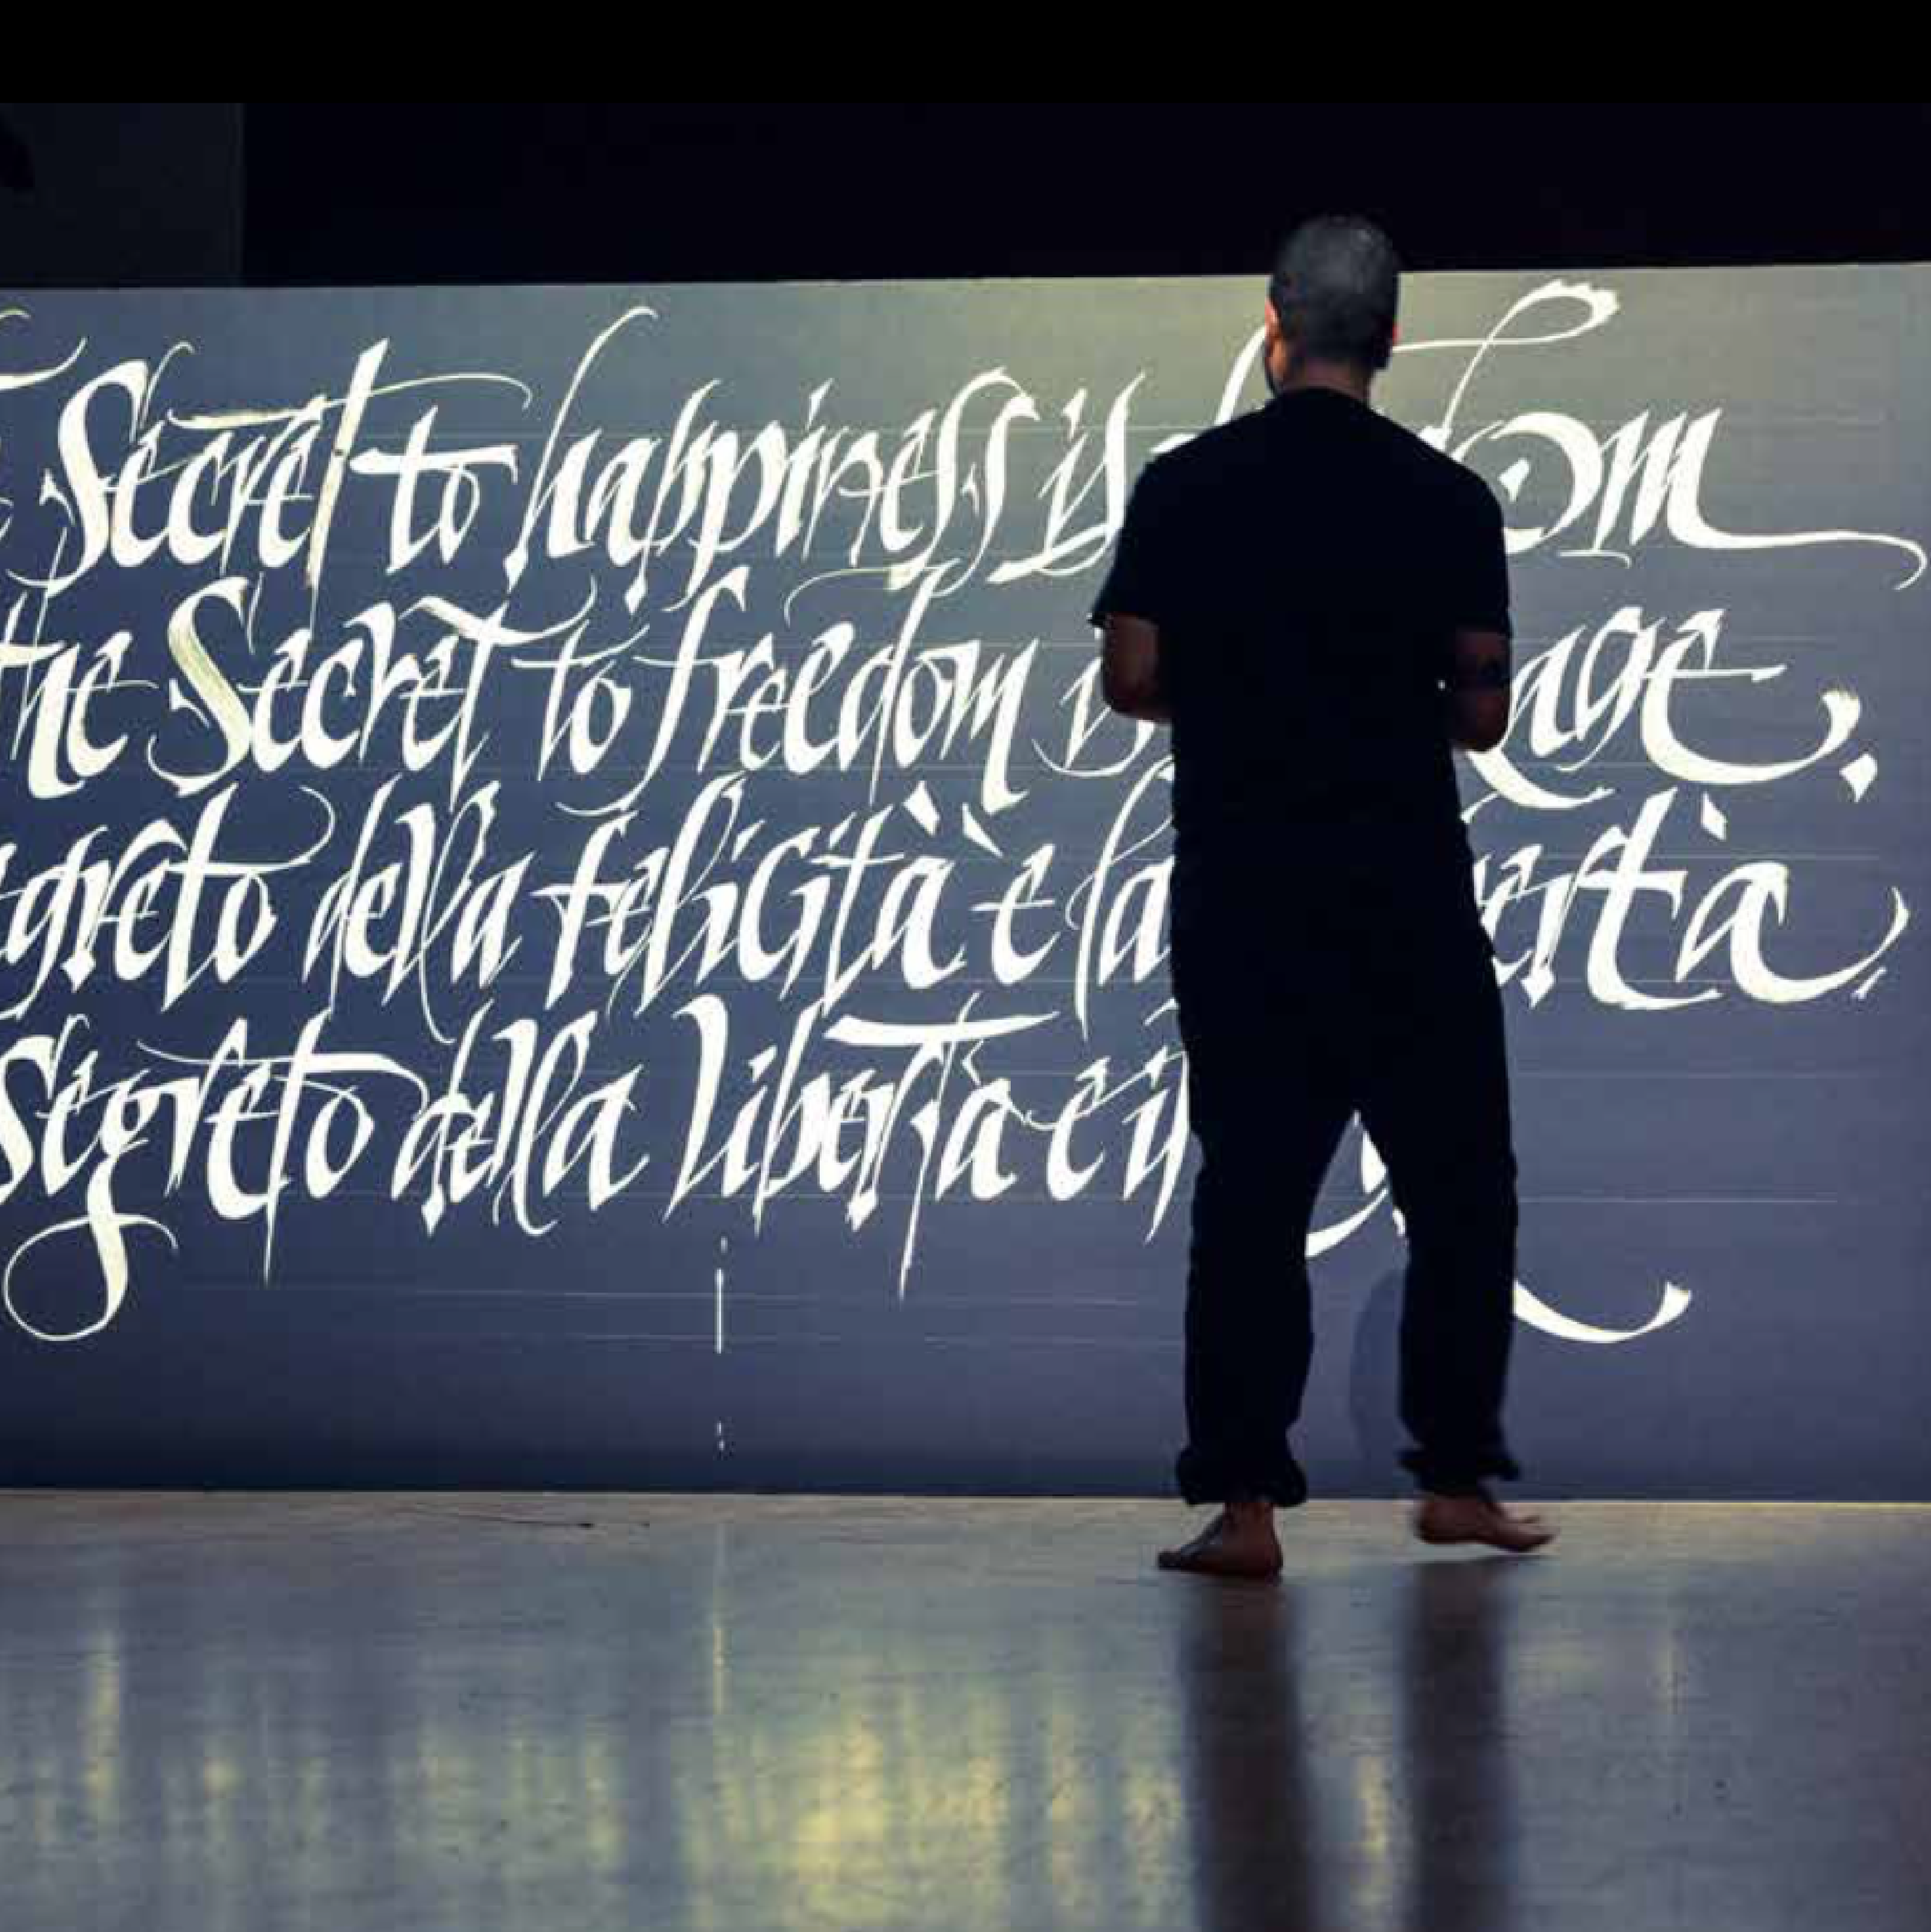 Secret to happiness is
the Secret to freedom
della felicità è la
Segreto della libertà è il